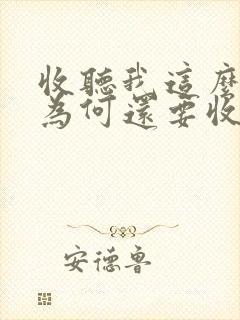 收聽我這麼
為何還要收
安德魯